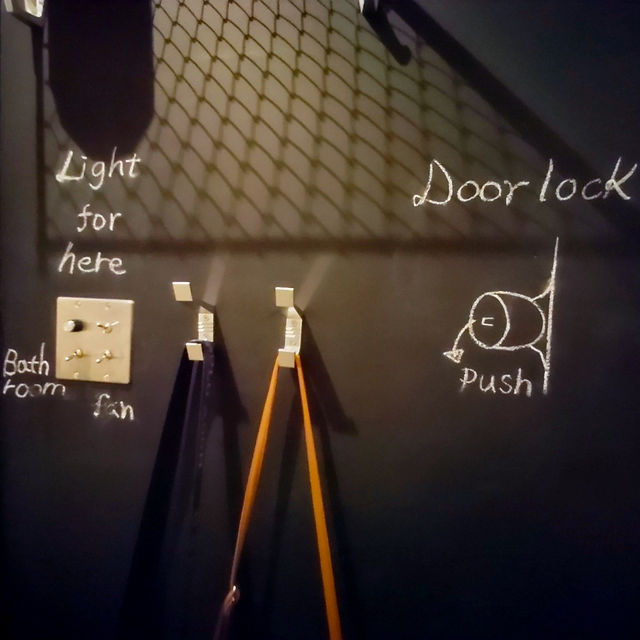 Light
for
here
Door lock
Bath
room
fan
Push